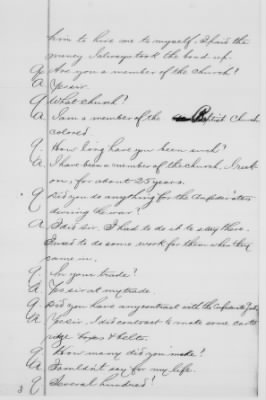 him to hire me to myself. I paid the
money I always took the bond up.
Q Are you a member of the Church?
A Yes sir.
Q What church?
A I am a member of the Baptist Church
colored.
Q How long have you been such?
A I have been a member of the church, I reck
on, for about 25 years.
Q Did you do anything for the Confederates
during the war?
A I did sir. I had to do it to stay there.
I used to do some work for them when they
came in.
Q In your trade?
A Yes sir at my trade.
Q Did you have any contract with the Confederate
A Yes sir. I did contract to make some cart
ridge boxes & belts.
Q How many did you make?
A I couldn't say for my life.
Q Several hundred?